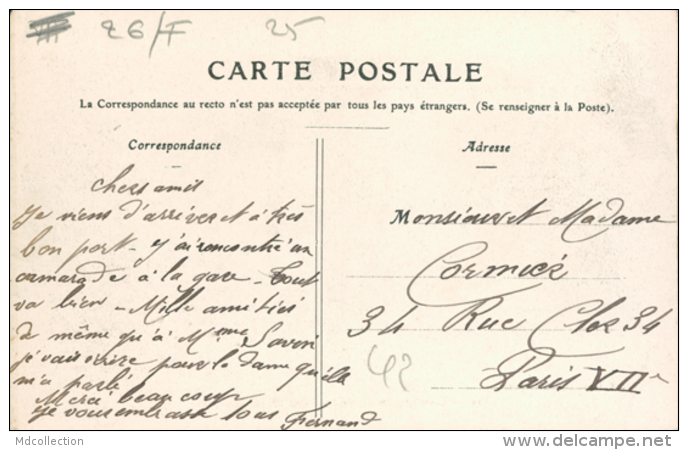 26/F 25
CARTE POSTALE
La Correspondance au recto n'est pas acceptée par tous les pays étrangers. (Se renseigner à la Poste).
Correspondance
Adresse
Chers amis
Je viens d'arriver et à très
bon port - J'ai rencontré un
camarade à la gare - Tout
va bien - Mille amitiés
de même qu'à Mme
je vais écrire pour la dame qu'elle
m'a parlé
Merci beaucoup
je vous embrasse tous Fernand
Monsieur et Madame
34 Rue 34
42
Paris VIIe
Mdcollection
delcampe.net